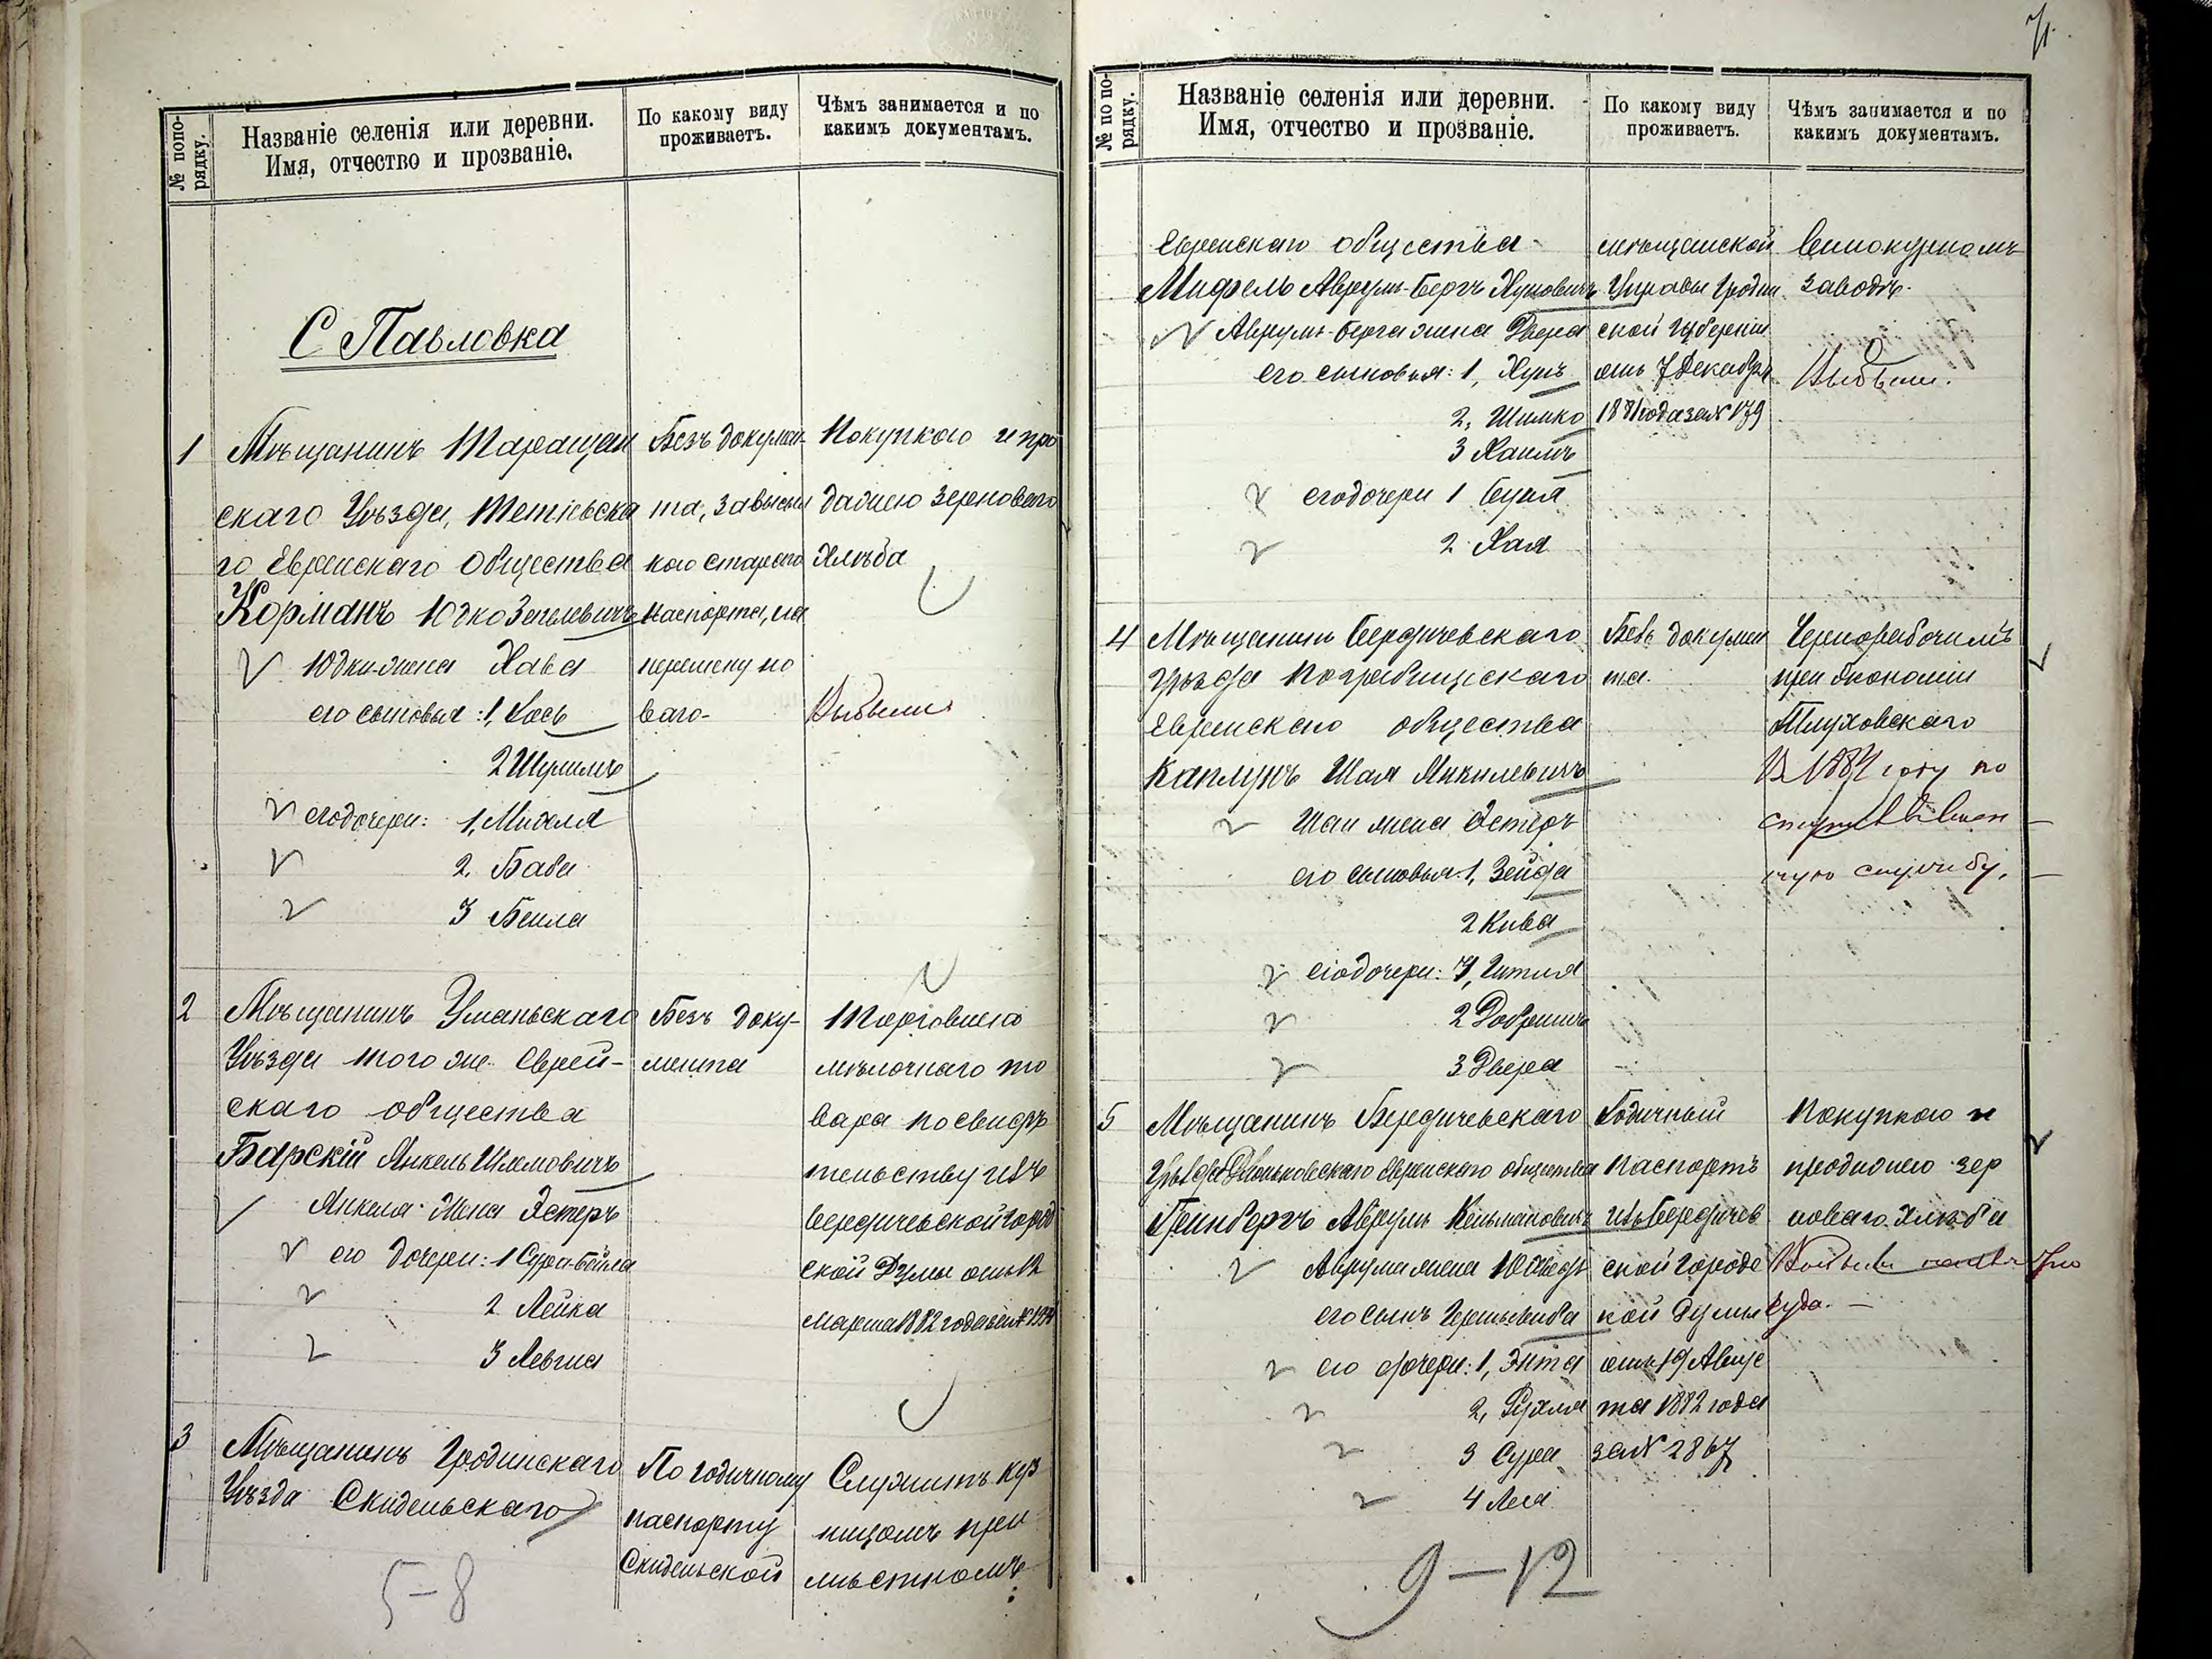 № попо-
рядку.
Названіе селенія или деревни.
Имя, отчество и прозваніе.
По какому виду
проживаетъ.
Чѣмъ занимается и по
какимъ документамъ.
С Павловка
1 Мѣщанинъ Таращан
скаго Уѣзда, Тетіевска
го Еврейскаго Общества
Корманъ Юдко Зейлевичъ
Юдки жена Хава
его сыновья: 1, Іось
2 Шулимъ
его дочери: 1, Михля
2, Баба
3 Бейла
Безъ докумен-
та, за высыл
кою стараго
паспорта, на
перемену но
ваго-
Покупкою и про
дажею зерноваго
хлѣба
Выбыли
2 Мѣщанинъ Уманьскаго
Уѣзда того же Еврей-
скаго общества
Барскій Янкель Шлемовичъ
Янкеля жена Эстеръ
его дочери: 1 Сура-Бейла
2 Лейка
3
Безъ доку-
мента
Торговлею
мѣлочнаго то
вара по свидѣ
тельству изъ
Бердичевской Город
ской Думы отъ 12
Марта 1882 года за №
3 Мѣщанинъ Гродненскаго
Уѣзда Скидельскаго
По годичному
паспорту
Скидельской
Служитъ куз
нецомъ при
мѣстномъ
5-8
71.
№ по по-
рядку.
Названіе селенія или деревни.
Имя, отчество и прозваніе.
По какому виду
проживаетъ.
Чѣмъ занимается и по
какимъ документамъ.
Еврейскаго общества
Аврумъ-Бергъ Хуновичъ
Аврумъ-Берга жена Двера
его сыновья: 1, Хунъ
2, Шимко
3 Хаимъ
его дочери 1
2 Хая
мѣщанской
Управы Гродн
ской Губерніи
отъ 7 Декабря
1881 года за № 179
Винокурномъ
заводѣ.
Выбыли.
4 Мѣщанинъ Бердичевскаго
Уѣзда Погребищскаго
Еврейскаго общества
Каплунъ Шая Микилевичъ
Шаи жена Эстеръ
его сыновья: 1, Зейда
2 Кива
его дочери: 1, Гитля
2
3 Двера
Безъ докумен
та.
Чернорабочимъ
при экономіи
Плуховскаго
В 1882 году по
ступилъ в воен
ную службу.
5 Мѣщанинъ Бердичевскаго
Уѣзда Еврейскаго общества
Гринбергъ Аврумъ Кельмановичъ
Аврума жена
его сынъ
его дочери: 1, Энта
2, Рухля
3 Сура
4 Леа
Годичный
паспортъ
изъ Бердичев
ской городс
кой Думы
отъ 19 Авгус
та 1882 года
за № 2867
Покупкою и
продажею зер
новаго хлѣба
куда.
9-12